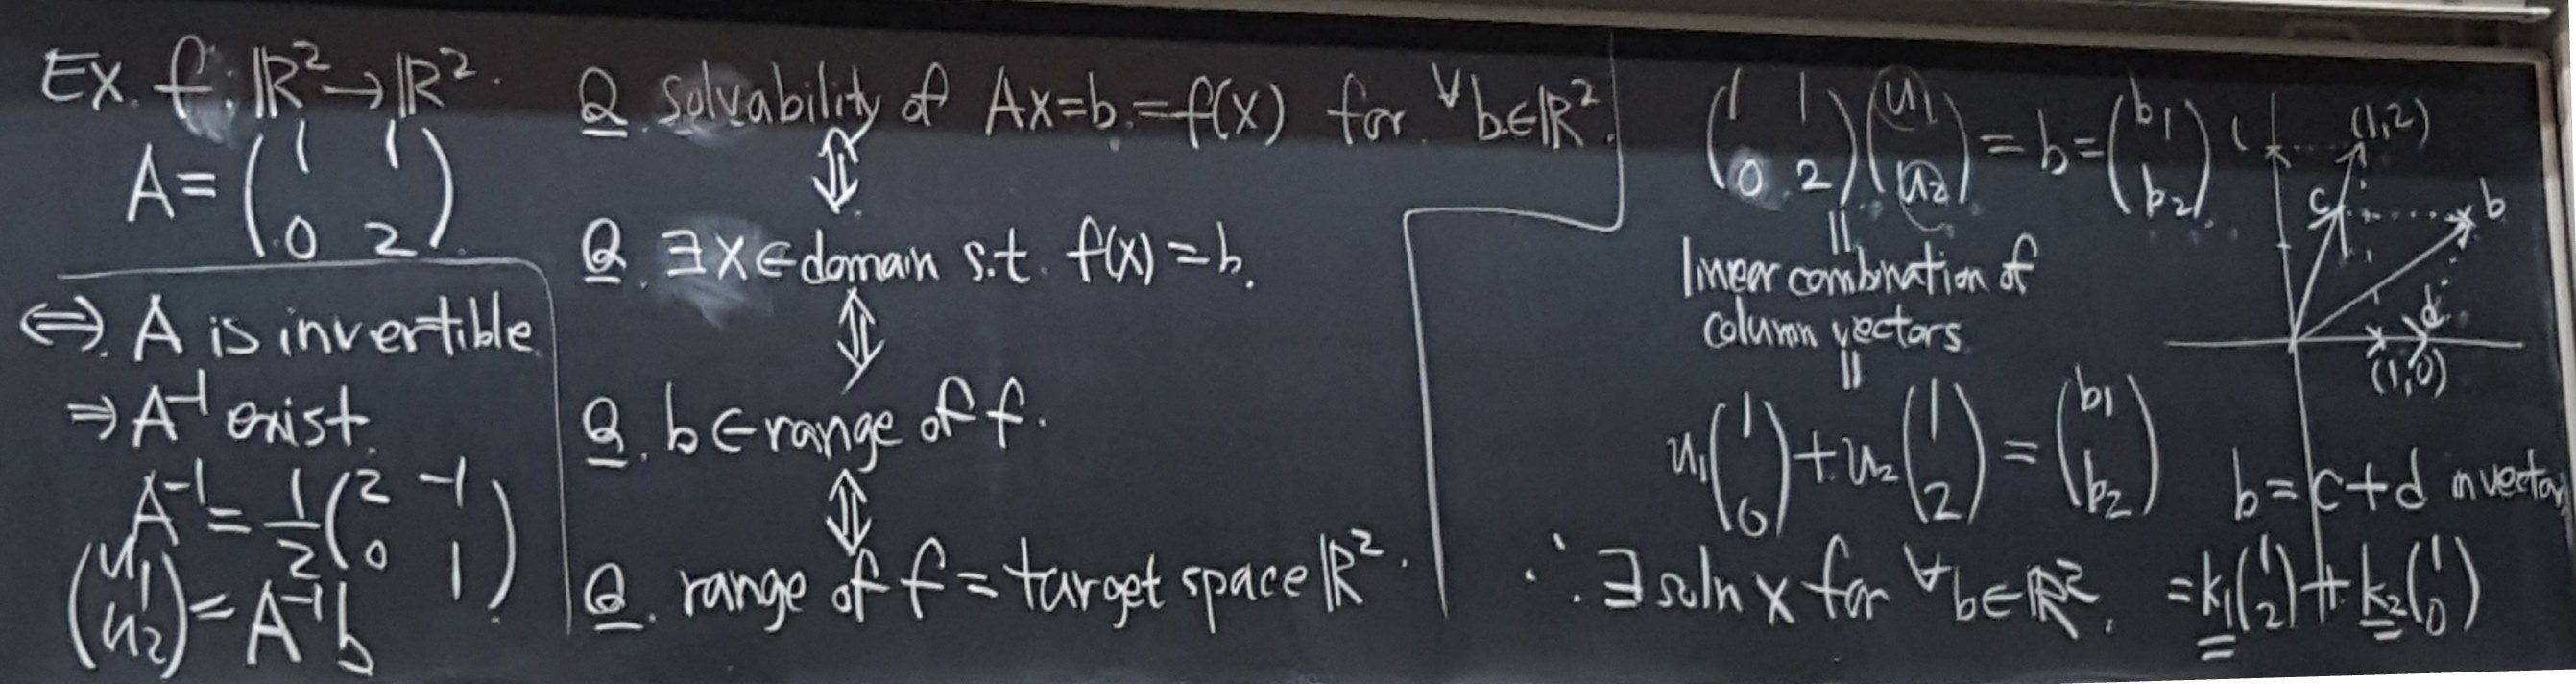 Ex. f: ℝ² → ℝ².
A = ( 1 1
0 2 )
⇔ A is invertible
⇒ A⁻¹ exist.
A⁻¹ = 1/2 ( 2 -1
0 1 )
( u₁
u₂ ) = A⁻¹b
Q. solvability of Ax=b.=f(x) for ∀b∈ℝ².
⇕
Q. ∃x∈domain s.t. f(x)=b.
⇕
Q. b∈range of f.
⇕
Q. range of f = target space ℝ².
( 1 1
0 2 ) ( u₁
u₂ ) = b = ( b₁
b₂ )
||
linear combination of
column vectors
||
u₁ ( 1
0 ) + u₂ ( 1
2 ) = ( b₁
b₂ )
∴ ∃ soln x for ∀b∈ℝ².
(1,2)
c
b
d
(1,0)
b = c + d in vector
= k₁ ( 1
2 ) + k₂ ( 1
0 )